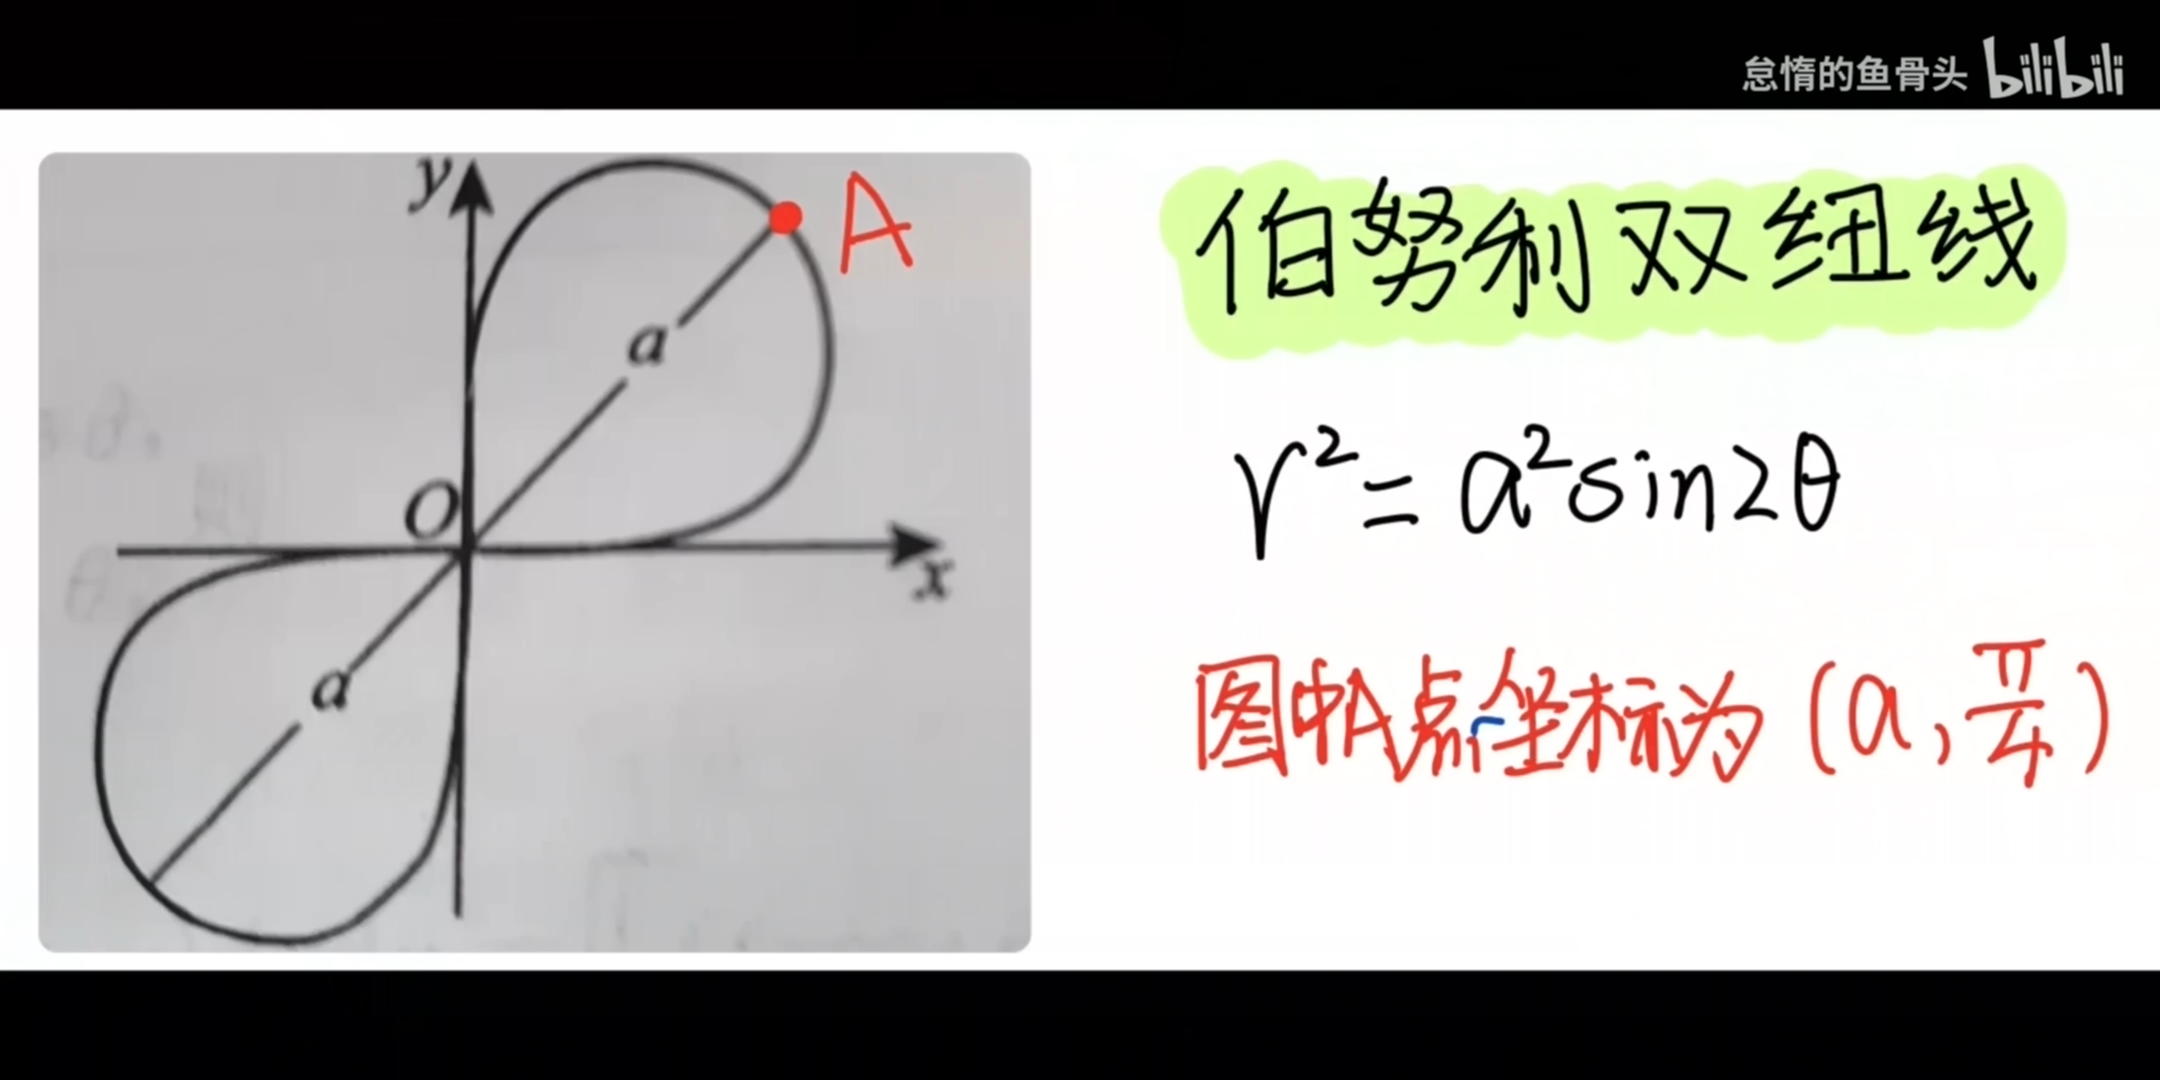 怠惰的鱼骨头 bilibili
y
A
a
O
x
a
伯努利双纽线
r²=a²sin2θ
图中A点坐标为(a,π/4)